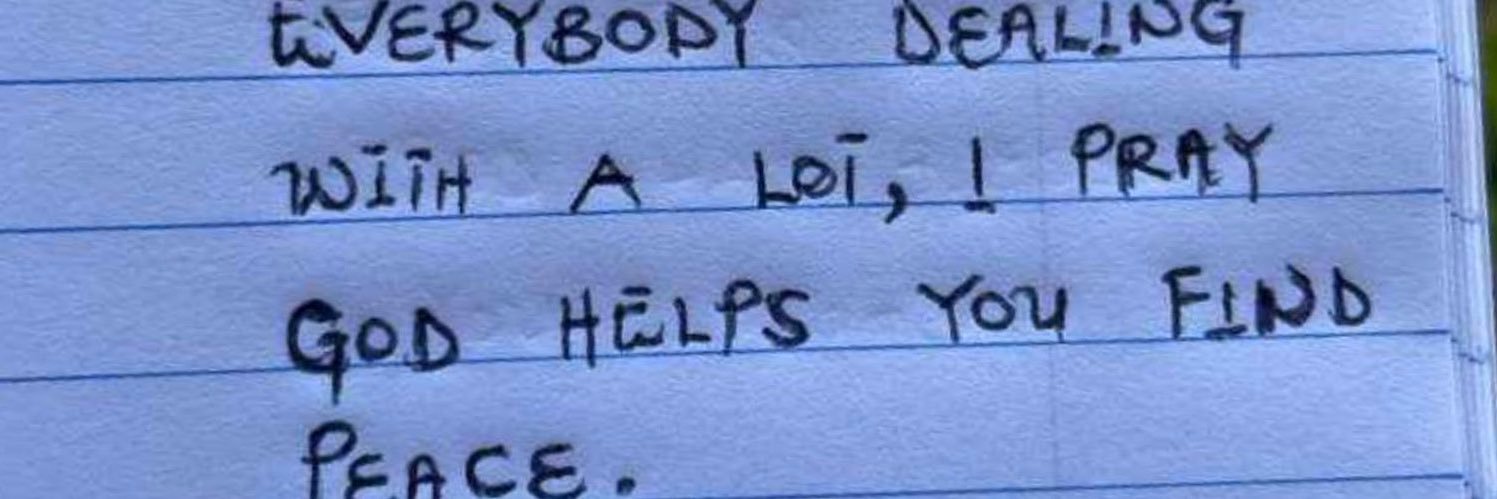 EVERYBODY DEALING
WITH A LOT, I PRAY
GOD HELPS YOU FIND
PEACE.